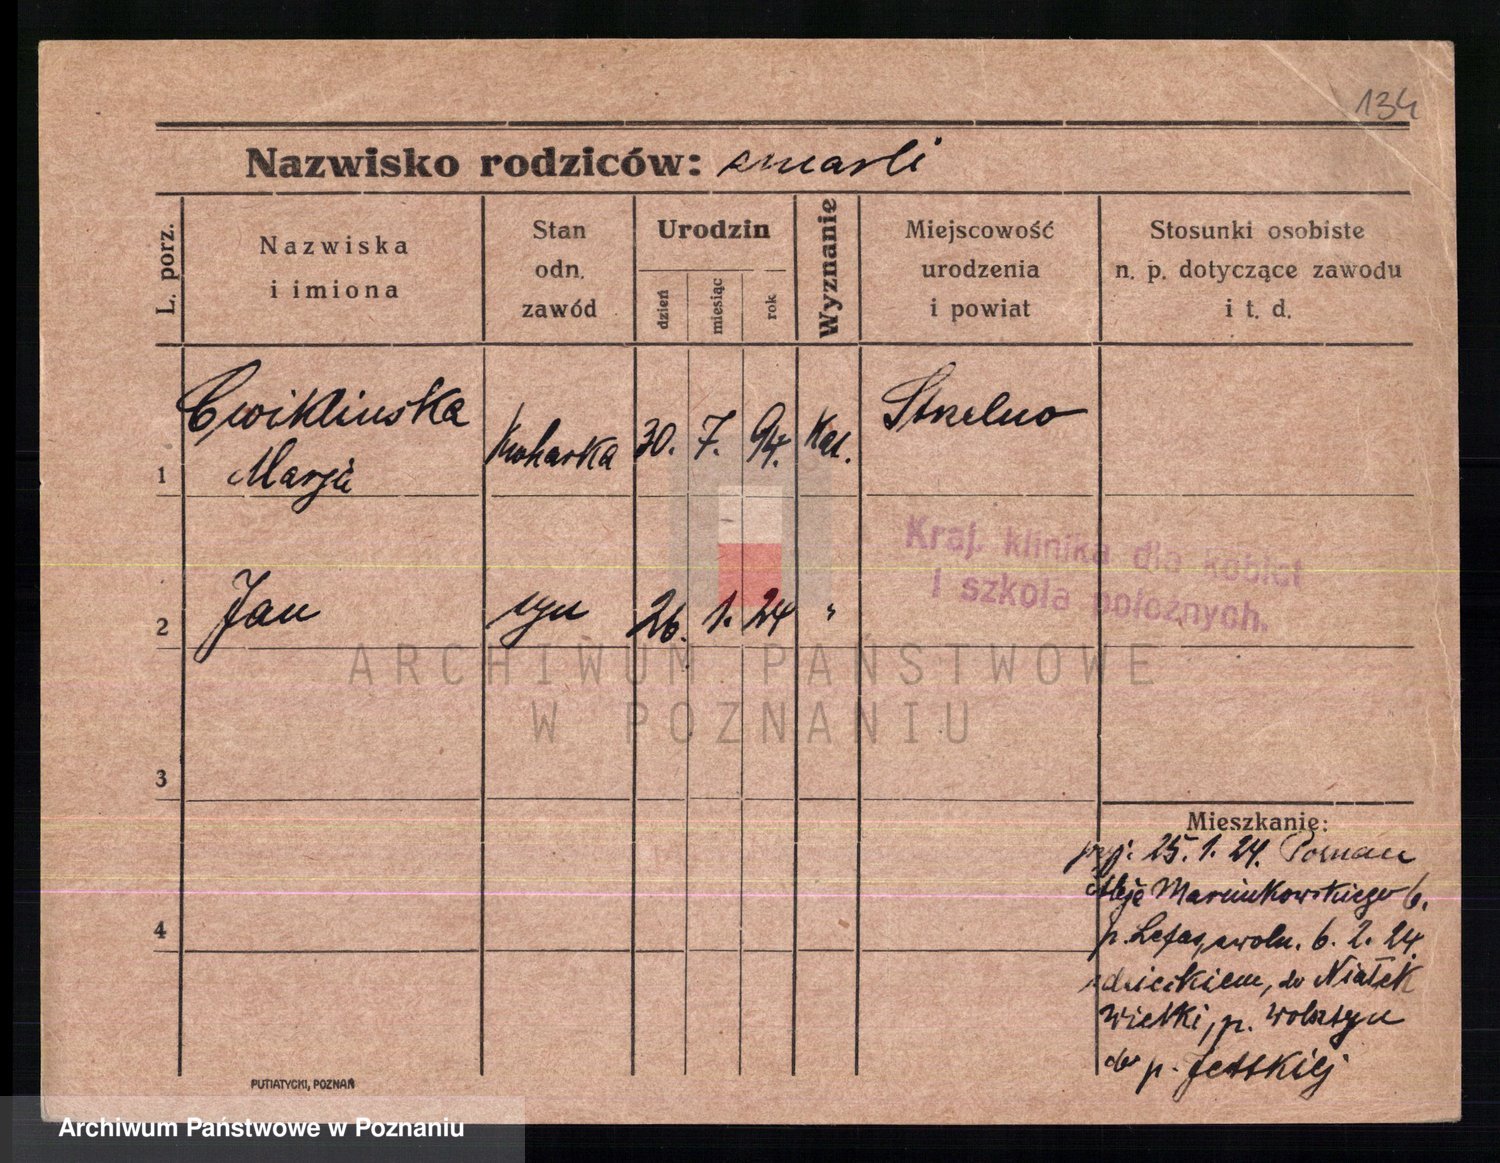 134
Nazwisko rodziców: zmarli
L. porz.
Nazwiska
i imiona
Stan
odn.
zawód
Urodzin
dzień
miesiąc
rok
Wyznanie
Miejscowość
urodzenia
i powiat
Stosunki osobiste
n. p. dotyczące zawodu
i t. d.
1
Cwiklinska
Marja
Kucharka
30. 7. 94.
Kat.
Strzelno
Kraj. klinika dla kobiet
i szkoła położnych.
2
Jan
syn
26. 1. 24
"
ARCHIWUM PAŃSTWOWE
W POZNANIU
3
4
Mieszkanie:
przyj. 25. 1. 24. Poznań
Aleje Marcinkowskiego 6.
p. zwoln. 6. 2. 24.
z dzieckiem, do Niałek
Wielki, p. Wolsztyn
do p.
PUTIATYCKI, POZNAŃ
Archiwum Państwowe w Poznaniu